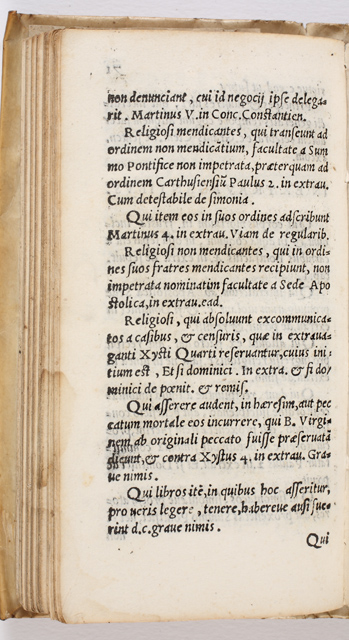 non denunciant, cui id negocij ipse delega-
rit. Martinus V. in Conc. Constantien.
Religiosi mendicantes, qui transeunt ad
ordinem non mendicātium, facultate a Sum
mo Pontifice non impetrata, præterquam ad
ordinem Carthusiensiū Paulus 2. in extrau.
Cum detestabile de simonia.
Qui item eos in suos ordines adscribunt
Martinus 4. in extrau. Viam de regularib.
Religiosi non mendicantes, qui in ordi-
nes suos fratres mendicantes recipiunt, non
impetrata nominatim facultate a Sede Apo
stolica, in extrau. ead.
Religiosi, qui absoluunt excommunica-
tos a casibus, & censuris, quæ in extraua-
ganti Xysti Quarti reseruantur, cuius ini-
tium est, Et si dominici. In extra. & si do-
minici de pœnit. & remiss.
Qui asserere audent, in hæresim, aut pec
catum mortale eos incurrere, qui B. Virgi-
nem ab originali peccato fuisse præseruatā
dicunt, & contra Xystus 4. in extrau. Gra-
ue nimis.
Qui libros itē, in quibus hoc asseritur,
pro ueris legere, tenere, habereue ausi fue-
rint d.c. graue nimis.
Qui